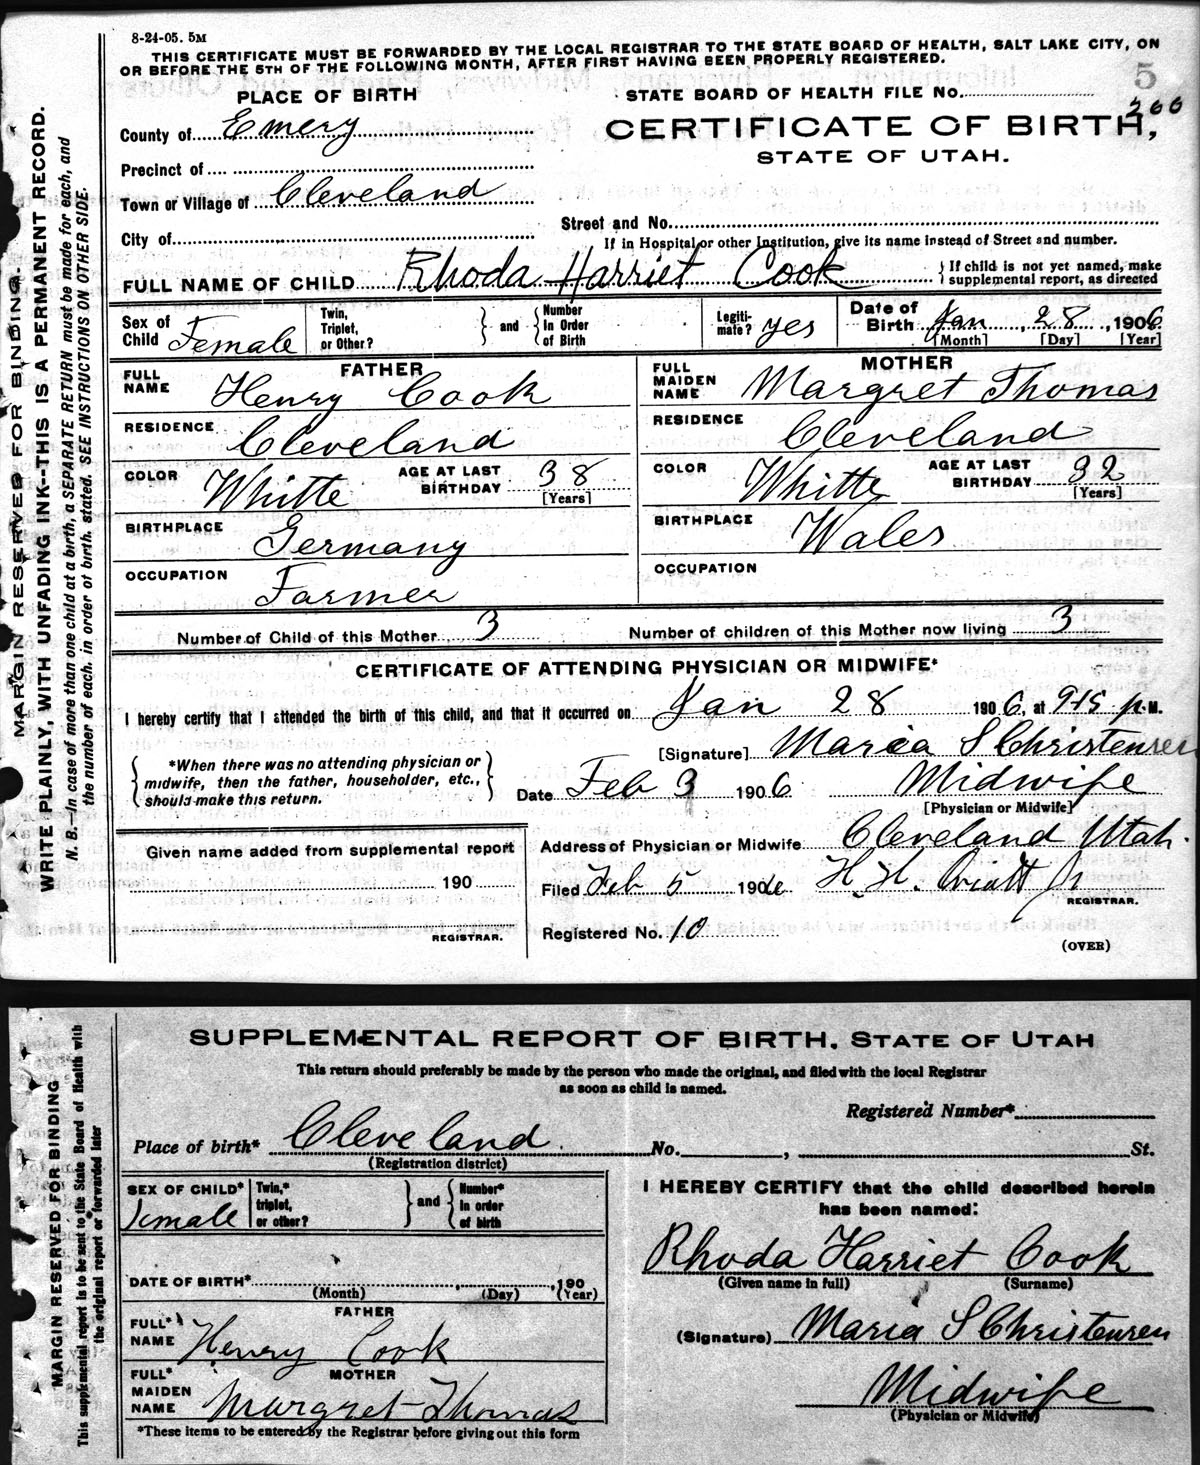 8-24-05. 5M
THIS CERTIFICATE MUST BE FORWARDED BY THE LOCAL REGISTRAR TO THE STATE BOARD OF HEALTH, SALT LAKE CITY, ON
OR BEFORE THE 5TH OF THE FOLLOWING MONTH, AFTER FIRST HAVING BEEN PROPERLY REGISTERED.
5
PLACE OF BIRTH
STATE BOARD OF HEALTH FILE No.
266
County of Emery
CERTIFICATE OF BIRTH,
STATE OF UTAH.
Precinct of
Town or Village of Cleveland
Street and No.
City of
If in Hospital or other Institution, give its name instead of Street and number.
FULL NAME OF CHILD Rhoda Harriet Cook
} If child is not yet named, make
supplemental report, as directed
Sex of Child Female
Twin, Triplet, or Other?
} and {
Number In Order of Birth
Legiti-mate? yes
Date of Birth Jan 28, 1906
[Month] [Day] [Year]
FATHER
FULL NAME Henry Cook
RESIDENCE Cleveland
COLOR Whitte
AGE AT LAST BIRTHDAY 38
[Years]
BIRTHPLACE Germany
OCCUPATION Farmer
MOTHER
FULL MAIDEN NAME Margret Thomas
RESIDENCE Cleveland
COLOR Whitte
AGE AT LAST BIRTHDAY 32
[Years]
BIRTHPLACE Wales
OCCUPATION
Number of Child of this Mother 3
Number of children of this Mother now living 3
CERTIFICATE OF ATTENDING PHYSICIAN OR MIDWIFE*
I hereby certify that I attended the birth of this child, and that it occurred on Jan 28 1906, at 915 p.M.
*When there was no attending physician or
midwife, then the father, householder, etc.,
should make this return.
[Signature] Maria S Christensen
Date Feb 3 1906 Midwife
[Physician or Midwife]
Given name added from supplemental report
190
REGISTRAR.
Address of Physician or Midwife Cleveland Utah.
Filed Feb 5 1906 H. H. Oviatt Jr
REGISTRAR.
Registered No. 10
(OVER)
MARGIN RESERVED FOR BINDING.
WRITE PLAINLY, WITH UNFADING INK--THIS IS A PERMANENT RECORD.
N. B.—In case of more than one child at a birth, a SEPARATE RETURN must be made for each, and
the number of each, in order of birth, stated. SEE INSTRUCTIONS ON OTHER SIDE.
SUPPLEMENTAL REPORT OF BIRTH, STATE OF UTAH
This return should preferably be made by the person who made the original, and filed with the local Registrar
as soon as child is named.
Registered Number*
Place of birth* Cleveland No. , St.
(Registration district)
SEX OF CHILD* Female
Twin,* triplet, or other?
} and {
Number* in order of birth
DATE OF BIRTH* 190
(Month) (Day) (Year)
FATHER
FULL* NAME Henry Cook
MOTHER
FULL* MAIDEN NAME Margret Thomas
*These items to be entered by the Registrar before giving out this form
I HEREBY CERTIFY that the child described herein
has been named:
Rhoda Harriet Cook
(Given name in full) (Surname)
(Signature) Maria S Christensen
Midwife
(Physician or Midwife)
MARGIN RESERVED FOR BINDING
This supplemental report is to be sent to the State Board of Health with
the original report or forwarded later